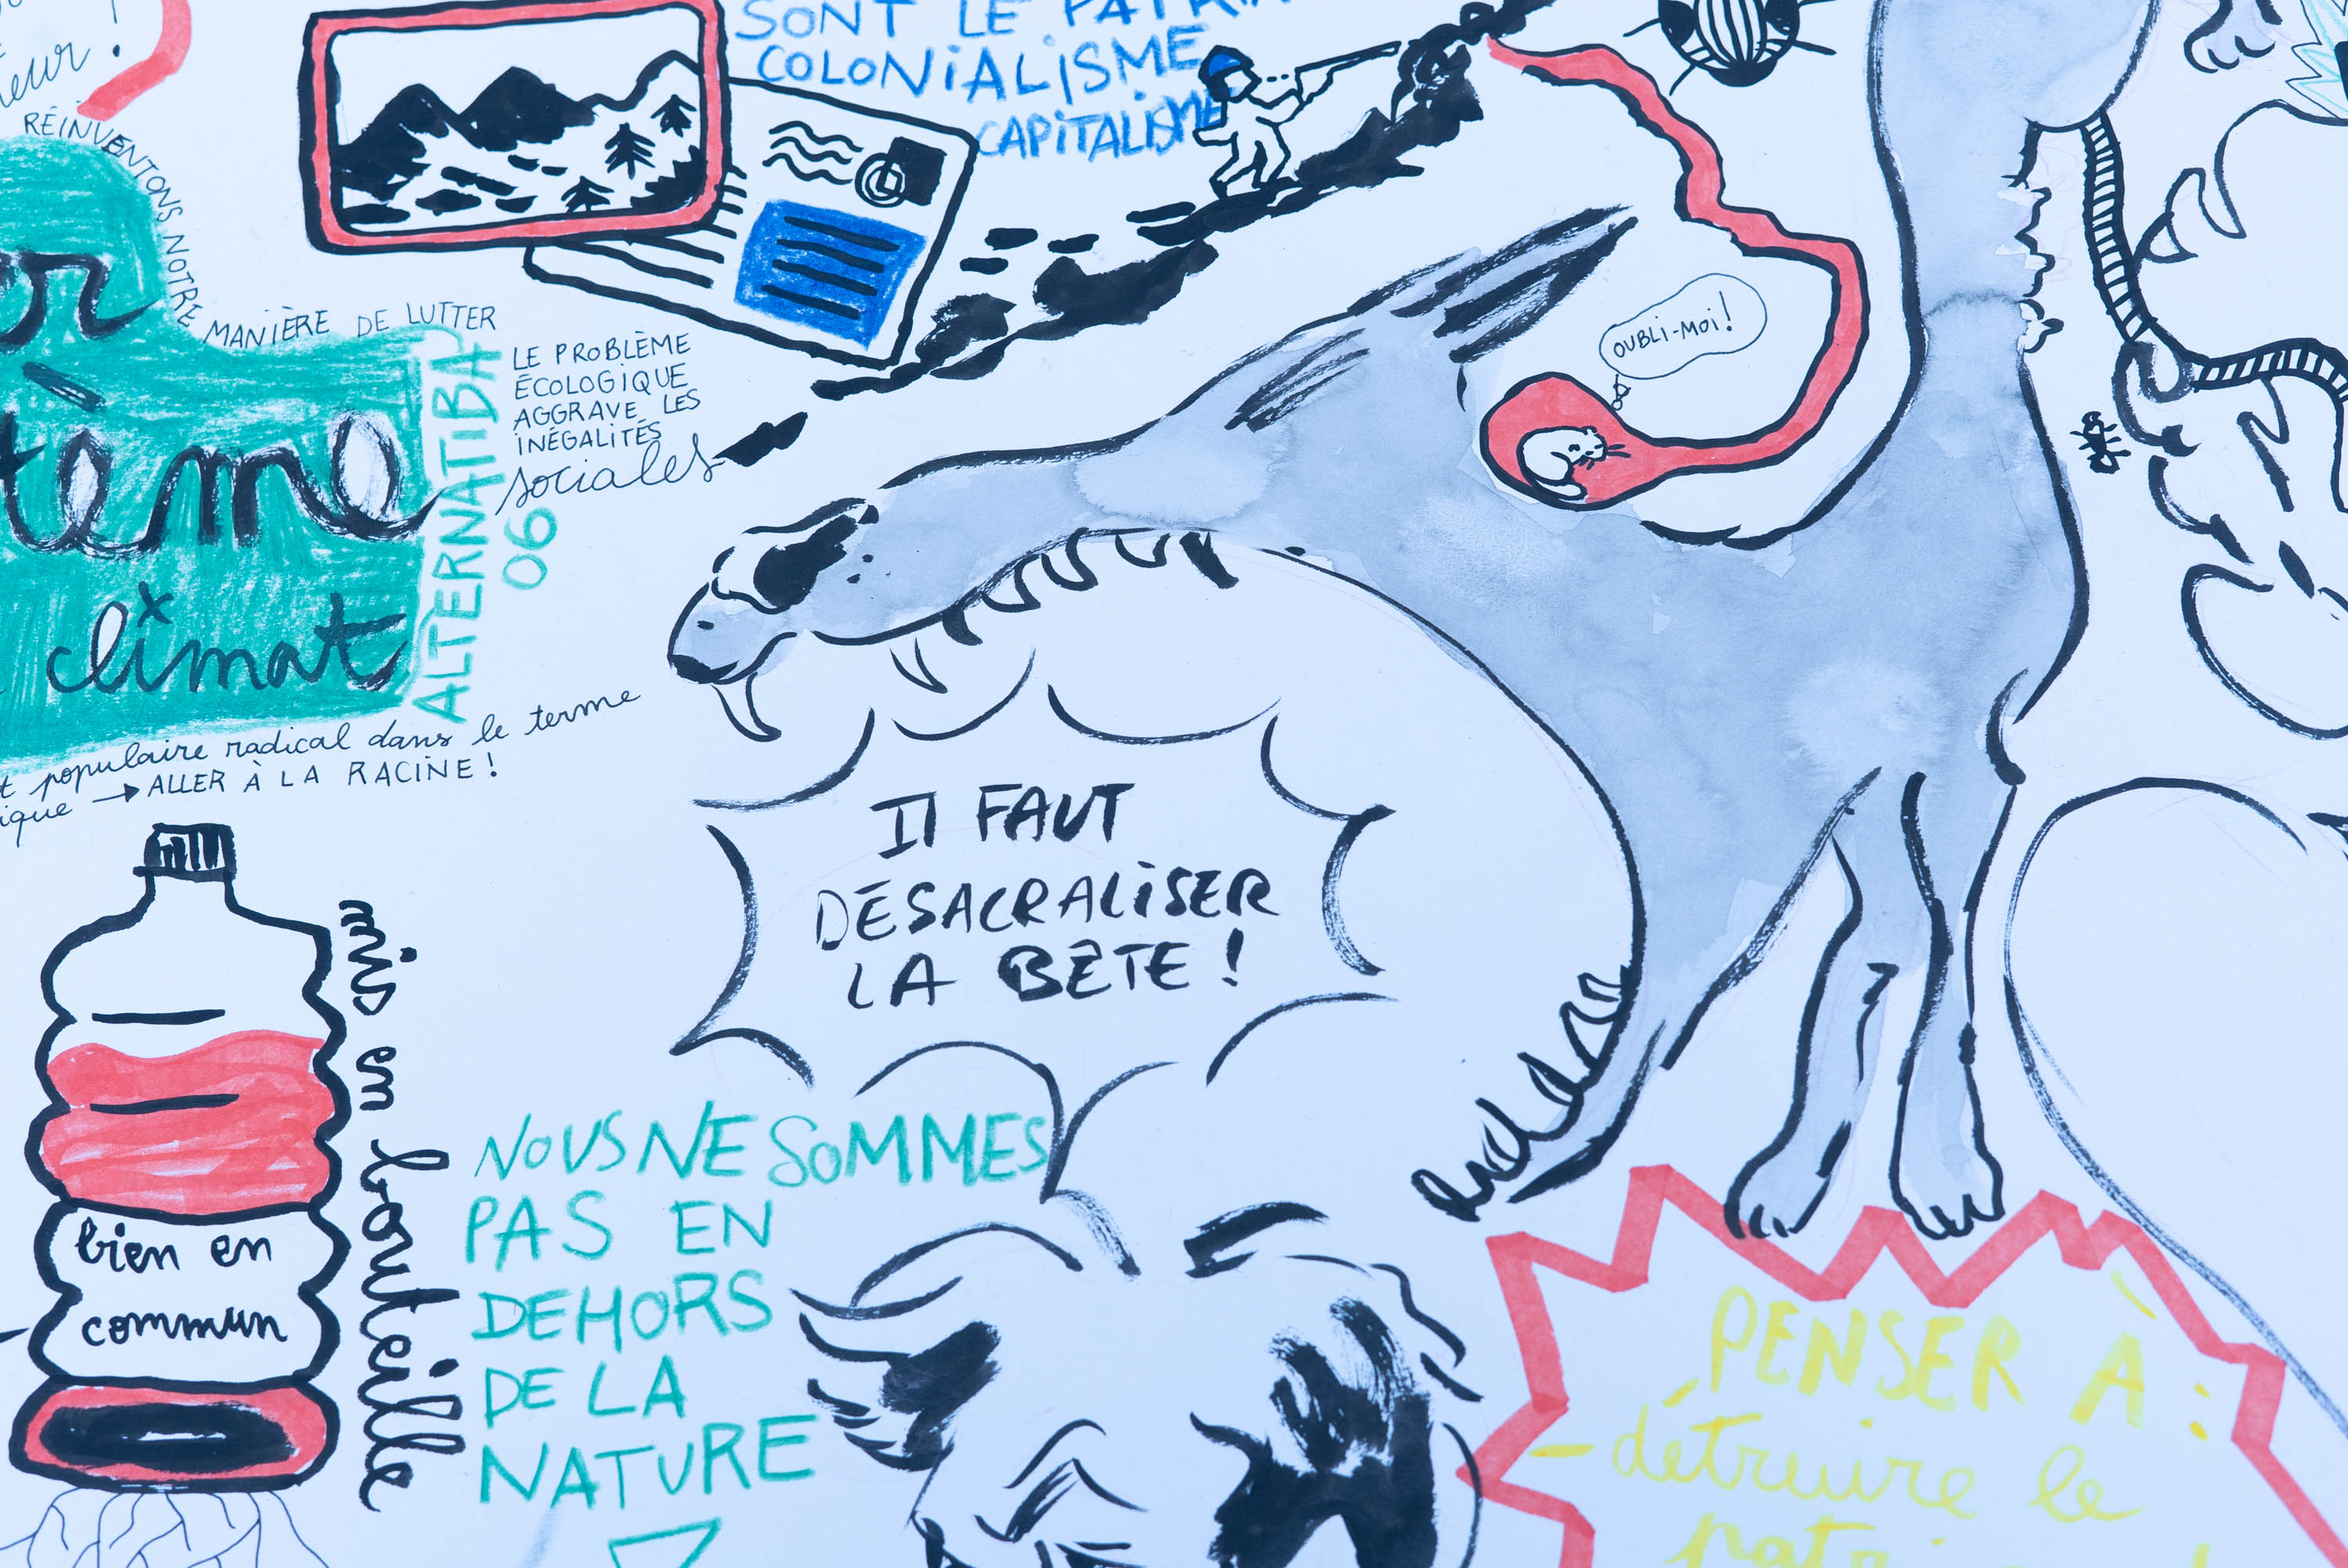 SONT LE
COLONIALISME
CAPITALISME
RÉINVENTONS NOTRE
MANIÈRE DE LUTTER
LE PROBLÈME
ÉCOLOGIQUE
AGGRAVE LES
INÉGALITÉS
sociales
climat
ALTERNATIBA
06
populaire radical dans le terme
→ ALLER À LA RACINE !
OUBLI-MOI !
Il FAUT
DÉSACRALISER
LA BÊTE !
mis en bouteille
bien en
commun
NOUS NE SOMMES
PAS EN
DEHORS
DE LA
NATURE
PENSER À :
- détruire le